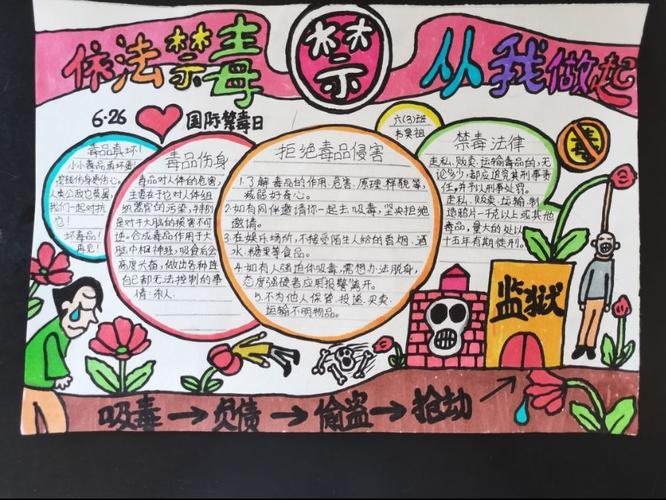 依法禁毒
禁
从我做起
6·26
国际禁毒日
六(3)班
毒品真坏!
小小毒品真坏事!
我们一起对抗
它!
坏毒品!
再见!
毒品伤身
毒品对人体的危害,
主要在于它对人体组
织器官的污染,特别
是对于大脑的损害不可
逆。合成毒品作用于大
脑中枢神经,吸食后会
高度兴奋,做出各种连
自己都无法控制的事
情:杀人.
拒绝毒品侵害
1.了解毒品的作用.危害.原理.样貌等,
戒弱好奇心。
2.如有同伴邀请你一起去吸毒,坚决拒绝
邀请。
3.在娱乐场所,不接受陌生人给的香烟.酒
水.糖果等食品。
4.如有人强迫你吸毒,需想办法脱身,
态度强硬者应用报警离开。
5.不为他人保管.投递.买卖.
运输不明物品。
禁毒法律
走私.贩卖.运输毒品的,无
论多少,都应追责刑事责
任,并予以刑事处罚。
走私、贩卖、运输、制
造鸦片一千克以上或其他
毒品,量大的处以
十五年有期徒刑。
毒
监狱
吸毒→欠债→偷盗→抢劫